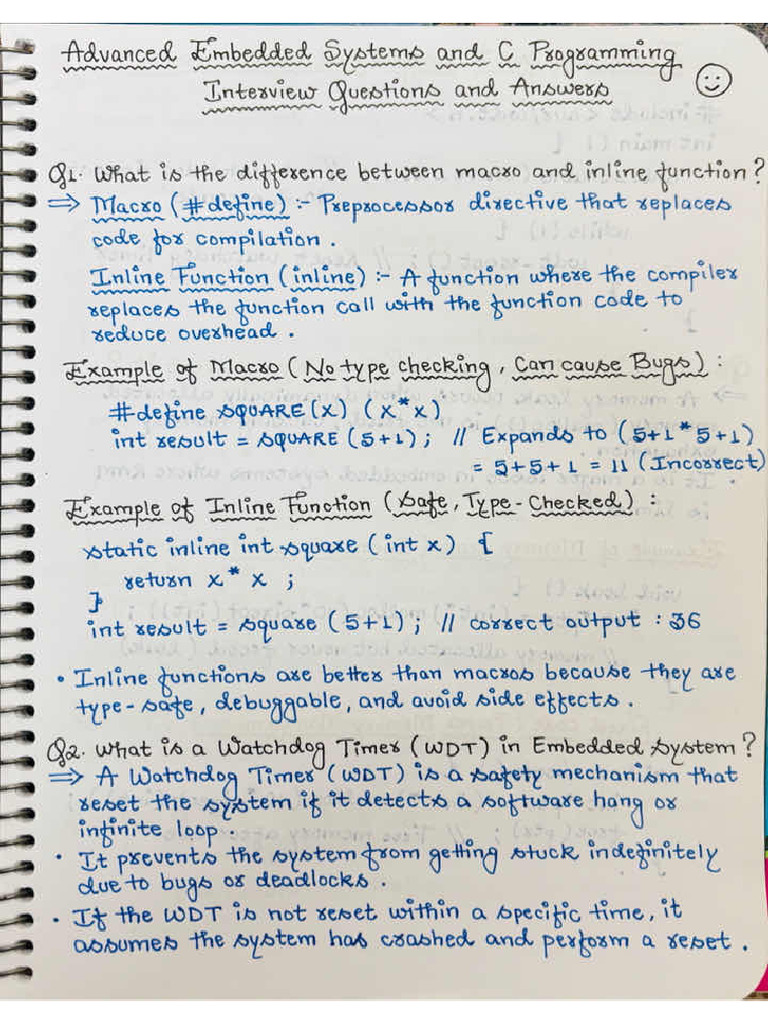 Advanced Embedded Systems and C Programming
Interview Questions and Answers
Q1. What is the difference between macro and inline function?
⇒ Macro (#define) :- Preprocessor directive that replaces
code for compilation.
Inline Function (inline) :- A function where the compiler
replaces the function call with the function code to
reduce overhead.
Example of Macro (No type checking, Can cause Bugs) :
#define SQUARE(x) (x*x)
int result = SQUARE (5+1); // Expands to (5+1*5+1)
= 5+5+1 = 11 (Incorrect)
Example of Inline Function (Safe, Type-Checked) :
static inline int square (int x) {
return x * x ;
}
int result = square (5+1); // correct output : 36
• Inline functions are better than macros because they are
type-safe, debuggable, and avoid side effects.
Q2. What is a Watchdog Timer (WDT) in Embedded System?
⇒ A Watchdog Timer (WDT) is a safety mechanism that
reset the system if it detects a software hang or
infinite loop.
• It prevents the system from getting stuck indefinitely
due to bugs or deadlocks.
• If the WDT is not reset within a specific time, it
assumes the system has crashed and perform a reset.